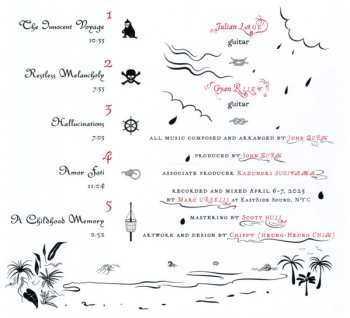 1
The Innocent Voyage
2
Restless Melancholy
3
Hallucinations
4
Amor Fati
11:24
5
A Childhood Memory
Julian Lage
guitar
Gyan Riley
guitar
all music composed and arranged by John Zorn
produced by John Zorn
associate producer Kazunori Sugiyama
recorded and mixed April 6-7,
by Marc Urselli at EastSide Sound, NYC
mastering by Scott Hull
artwork and design by Chippy (Heung-Heung Chin)